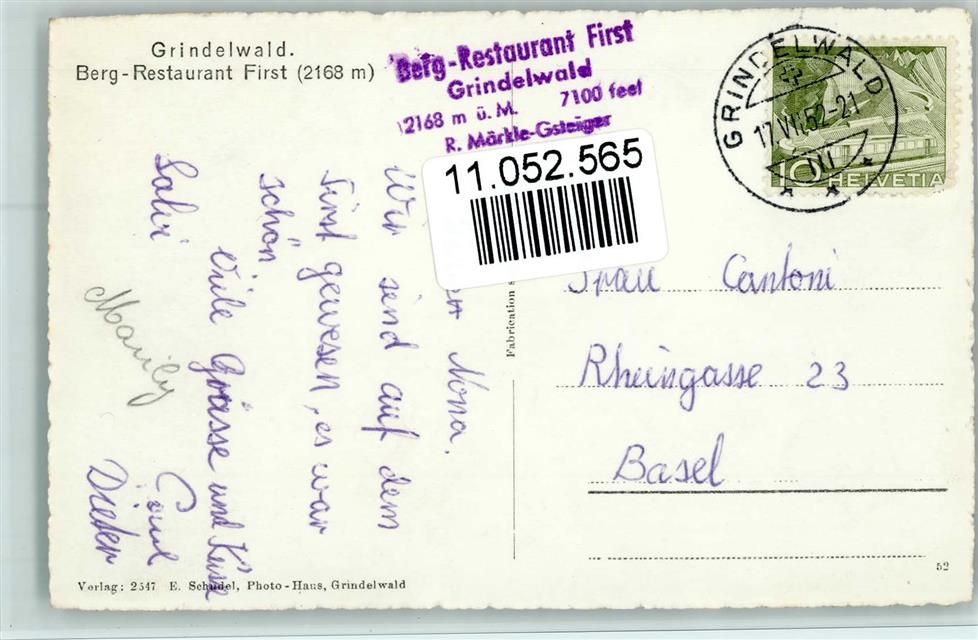 Grindelwald.
Berg-Restaurant First (2168 m)
Berg-Restaurant First
Grindelwald
2168 m ü. M. 7100 feet
R. Märkle-Gsteiger
GRINDELWALD
17.VII.52-21
10 HELVETIA
11.052.565
Nona.
Wir sind auf dem
First gewesen, es war
schön
Viele Grüsse und Küsse
Salü
Emil
Dieter
Frau Cantoni
Rheingasse 23
Basel
Fabrication s
52
Verlag: 2547 E. Schudel, Photo-Haus, Grindelwald